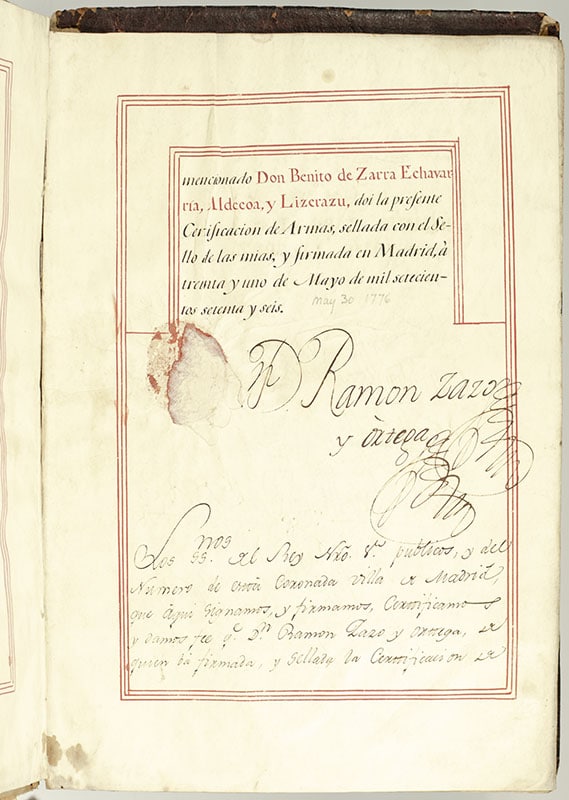 mencionado Don Benito de Zarra Echavar
ria, Aldecoa, y Lizerazu, doi la presente
Cerificacion de Armas, sellada con el Se-
llo de las mias, y firmada en Madrid, à
treinta y uno de Mayo de mil setecien-
tos setenta y seis.
may 30 1776
Dn Ramon Zazo
y Òrtega
Los ssnos. del Rey Nro. Sr. publicos, y del
Numero de esta Coronada Villa de Madrid,
que àqui signamos, y firmamos, Certificamos
y damos fee qe. Dn. Ramon Zazo y Ortega, de
quien bà firmada, y sellada la Certificacion de